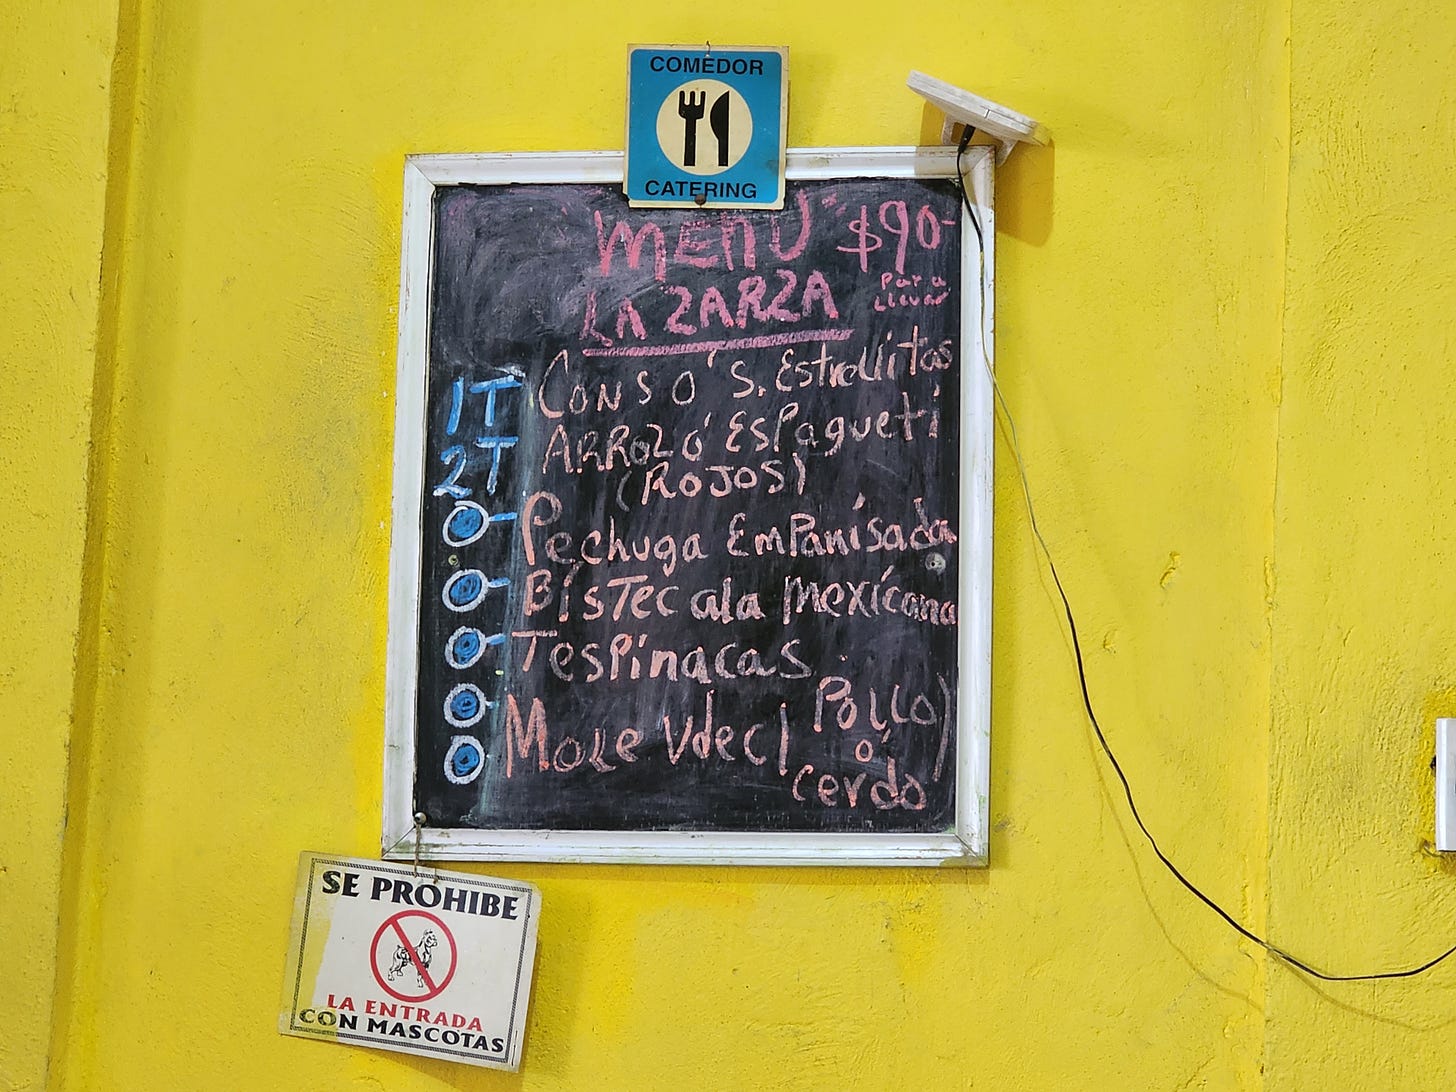 COMEDOR
CATERING
MENU $90-
LA ZARZA Para
LLevar
1T CONSO Ó S. Estrellitas
2T ARROZ Ó ESPaguetí
(ROJOS)
Pechuga EmPanísada
BísTec ala Mexícana
TesPínacas
MOLE Vde (POLLO)
Ó
cerdo
SE PROHIBE
LA ENTRADA
CON MASCOTAS